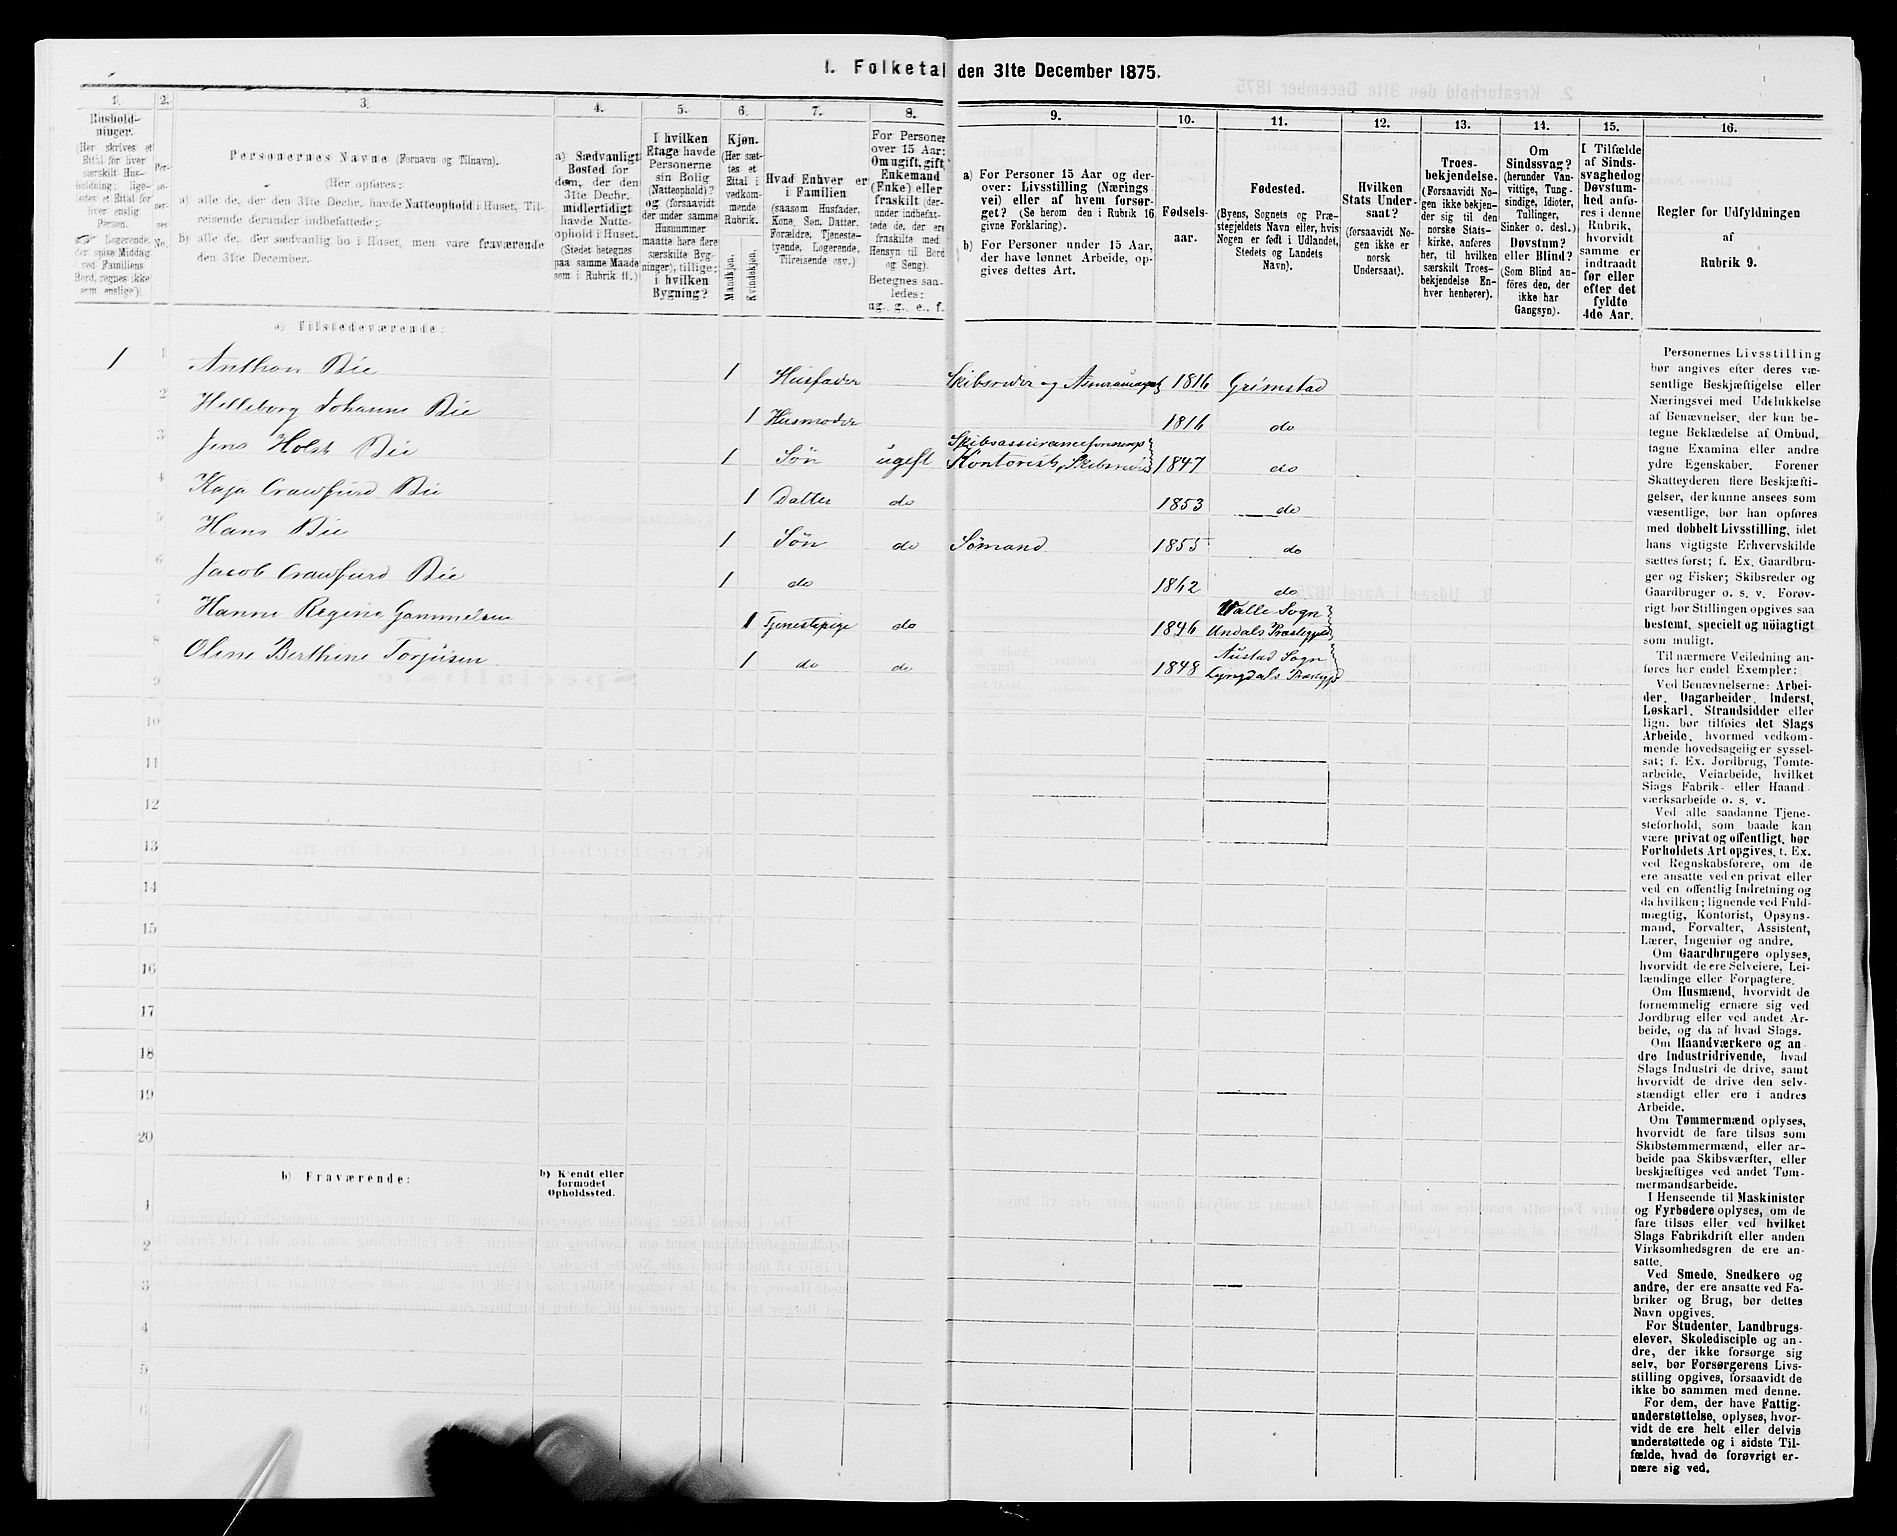 1. Folketal den 31te December 1875.
1.
Husholdninger.
(Her skrives et Ettal for hver særskilt Husholdning; ligeledes et Ettal for hver enslig Person.
Logerende, der spise Middag ved Familiens Bord, regnes ikke som enslige).
2.
Personernes No.
3.
Personernes Navne (Fornavn og Tilnavn).
(Her opføres:
a) alle de, der den 31te Decbr. havde Natteophold i Huset, Tilreisende derunder indbefattede;
b) alle de, der sædvanlig bo i Huset, men vare fraværende den 31te December.
4.
a) Sædvanligt Bosted for dem, der den 31te Decbr. midlertidigt havde Natteophold i Huset.
(Stedet betegnes paa samme Maade som i Rubrik 11.)
5.
I hvilken Etage havde Personerne sin Bolig (Natteophold)? og (forsaavidt der under samme Husnummer maatte høre flere særskilte Bygninger), tillige: i hvilken Bygning?
6.
Kjøn.
(Her sættes et Ettal i vedkommende Rubrik.
Mandkjøn.
Kvindekjøn.
7.
Hvad Enhver er i Familien
(saasom Husfader, Kone, Søn, Datter, Forældre, Tjenestetyende, Logerende, Tilreisende osv.)
8.
For Personer over 15 Aar: Om ugift, gift, Enkemand (Enke) eller fraskilt (derunder indbefattede de, der ere fraskilte med Hensyn til Bord og Seng).
Betegnes saaledes:
ug., g., e., f.
9.
a) For Personer 15 Aar og derover: Livsstilling (Næringsvei) eller af hvem forsørget? (Se herom den i Rubrik 16 givne Forklaring).
b) For Personer under 15 Aar, der have lønnet Arbeide, opgives dettes Art.
10.
Fødselsaar.
11.
Fødested.
(Byens, Sognets og Præstegjeldets Navn eller, hvis Nogen er født i Udlandet, Stedets og Landets Navn).
12.
Hvilken Stats Undersaat?
(forsaavidt Nogen ikke er norsk Undersaat).
13.
Troesbekjendelse.
(Forsaavidt Nogen ikke bekjender sig til den norske Statskirke, anføres her, til hvilken særskilt Troesbekjendelse Enhver henhører).
14.
Om Sindssvag? (herunder Vanvittige, Tungsindige, Idioter, Tullinger, Sinker o. desl.)
Døvstum? eller Blind?
(Som Blind anføres den, der ikke har Gangsyn).
15.
I Tilfælde af Sindssvaghed og Døvstumhed anføres i denne Rubrik, hvorvidt samme er indtraadt før eller efter det fyldte 4de Aar.
16.
Regler for Udfyldningen
af
Rubrik 9.
a) Tilstedeværende:
1 1 Anthon Bie 1 Husfader Skibsreder og 1816 Grimstad
2 Helleborg Johanne Bie 1 Husmoder 1816 do
3 Jens Holst Bie 1 Søn ugift Kontorist, Skibsreder 1847 do
4 Kaja Crawfurd Bie 1 Datter do 1853 do
5 Hans Bie 1 Søn do Sømand 1855 do
6 Jacob Crawfurd Bie 1 do 1862 do
7 Hanne Regine Gammelsen 1 Tjenestepige do 1846 Valle Sogn
Undals Præstegjeld
8 Oline Berthine Torjusen 1 do do 1848 Austad Sogn
Lyngdals Præstegjd
9
10
11
12
13
14
15
16
17
18
19
20
b) Fraværende:
b) Kjendt eller formodet Opholdssted.
1
2
3
4
5
6
Personernes Livsstilling
bør angives efter deres væ-
sentlige Beskjæftigelse eller
Næringsvei med Udelukkelse
af Benævnelser, der kun be-
tegne Beklædelse af Ombud,
tagne Examina eller andre
ydre Egenskaber. Forener
Skatteyderen flere Beskjæfti-
gelser, der kunne ansees som
væsentlige, bør han opføres
med dobbelt Livsstilling, idet
hans vigtigste Erhvervskilde
sættes først; f. Ex. Gaardbru-
ger og Fisker; Skibsreder og
Gaardbruger o. s. v. Forøv-
rigt bør Stillingen opgives saa
bestemt, specielt og nöiagtigt
som muligt.
Til nærmere Veiledning an-
føres her endel Exempler:
Ved Benævnelserne: Arbei-
der, Dagarbeider, Inderst,
Løskarl, Strandsidder eller
lign. bør tilføies det Slags
Arbeide, hvormed vedkom-
mende hovedsagelig er syssel-
sat; f. Ex. Jordbrug, Tomte-
arbeide, Veiarbeide, hvilket
Slags Fabrik- eller Haand-
værksarbeide o. s. v.
Ved alle saadanne Tjene-
steforhold, som baade kan
være privat og offentligt, bør
Forholdets Art opgives, t. Ex.
ved Regnskabsførere, om de
ere ansatte ved en privat eller
ved en offentlig Indretning og
da hvilken; lignende ved Fuld-
mægtig, Kontorist, Opsyns-
mand, Forvalter, Assistent,
Lærer, Ingeniør og andre.
Om Gaardbrugere oplyses,
hvorvidt de ere Selveiere, Lei-
lændinge eller Forpagtere.
Om Husmænd, hvorvidt de
fornemmelig ernære sig ved
Jordbrug eller ved andet Ar-
beide, og da af hvad Slags.
Om Haandværkere og an-
dre Industridrivende, hvad
Slags Industri de drive, samt
hvorvidt de drive den selv-
stændigt eller ere i andres
Arbeide.
Om Tømmermænd oplyses,
hvorvidt de fare tilsøs som
Skibstømmermænd, eller ar-
beide paa Skibsværfter, eller
beskjæftiges ved andet Tøm-
mermandsarbeide.
I Henseende til Maskinister
og Fyrbødere oplyses, om de
fare tilsøs eller ved hvilket
Slags Fabrikdrift eller anden
Virksomhedsgren de ere an-
satte.
Ved Smede, Snedkere og
andre, der ere ansatte ved Fa-
briker og Brug, bør dettes
Navn opgives.
For Studenter, Landbrugs-
elever, Skoledisciple og an-
dre, der ikke forsørge sig
selv, bør Forsørgerens Livs-
stilling opgives, forsaavidt de
ikke bo sammen med denne.
For dem, der have Fattig-
understøttelse, oplyses, hvor-
vidt de ere helt eller delvis
understøttede og i sidste Til-
fælde, hvad de forøvrigt er-
nære sig ved.